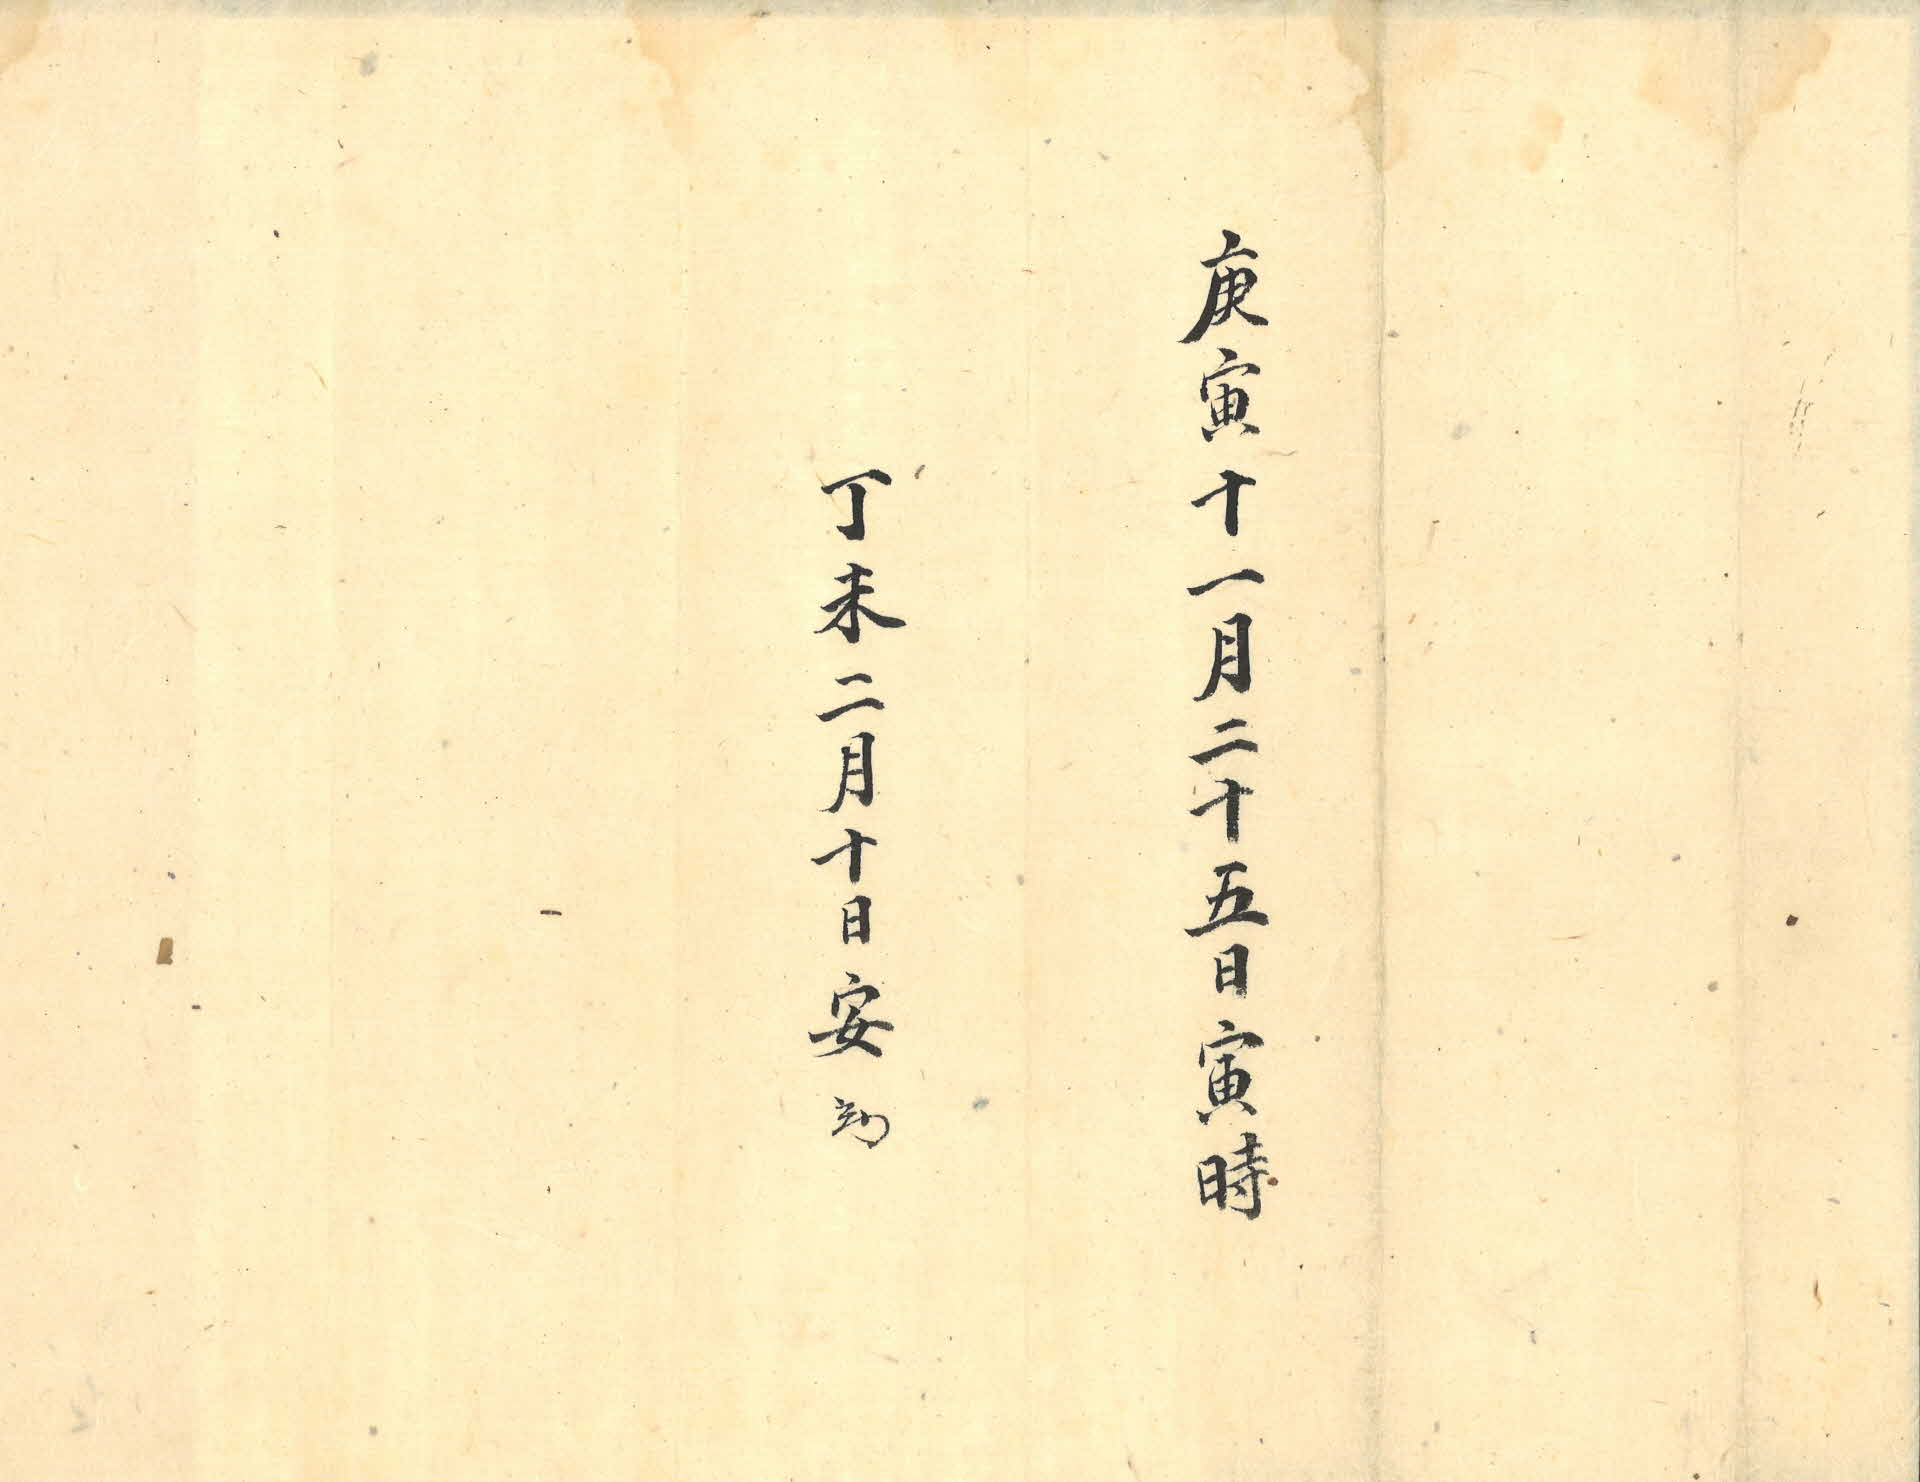 庚寅十一月二十五日寅時
丁未二月十日安